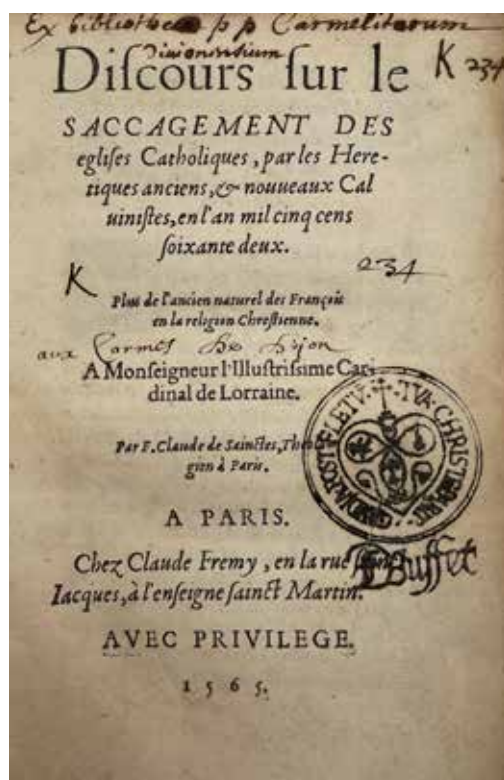 Ex bibliotheca pp Carmelitarum
Diuionensium
Diſcours ſur le
K 234
SACCAGEMENT DES
egliſes Catholiques, par les Here-
tiques anciens, & nouueaux Cal
uiniſtes, en l'an mil cinq cens
ſoixante deux.
K 234
Plus de l'ancien naturel des François
en la religion Chreſtienne.
aux Carmes de Dijon
A Monſeigneur l'Illuſtriſsime Car-
dinal de Lorraine.
Par F. Claude de Sainctes, Theolo-
gien à Paris.
A PARIS.
Chez Claude Fremy, en la rue ſainct
Iacques, à l'enſeigne ſainct Martin.
Buffet
AVEC PRIVILEGE.
1565.